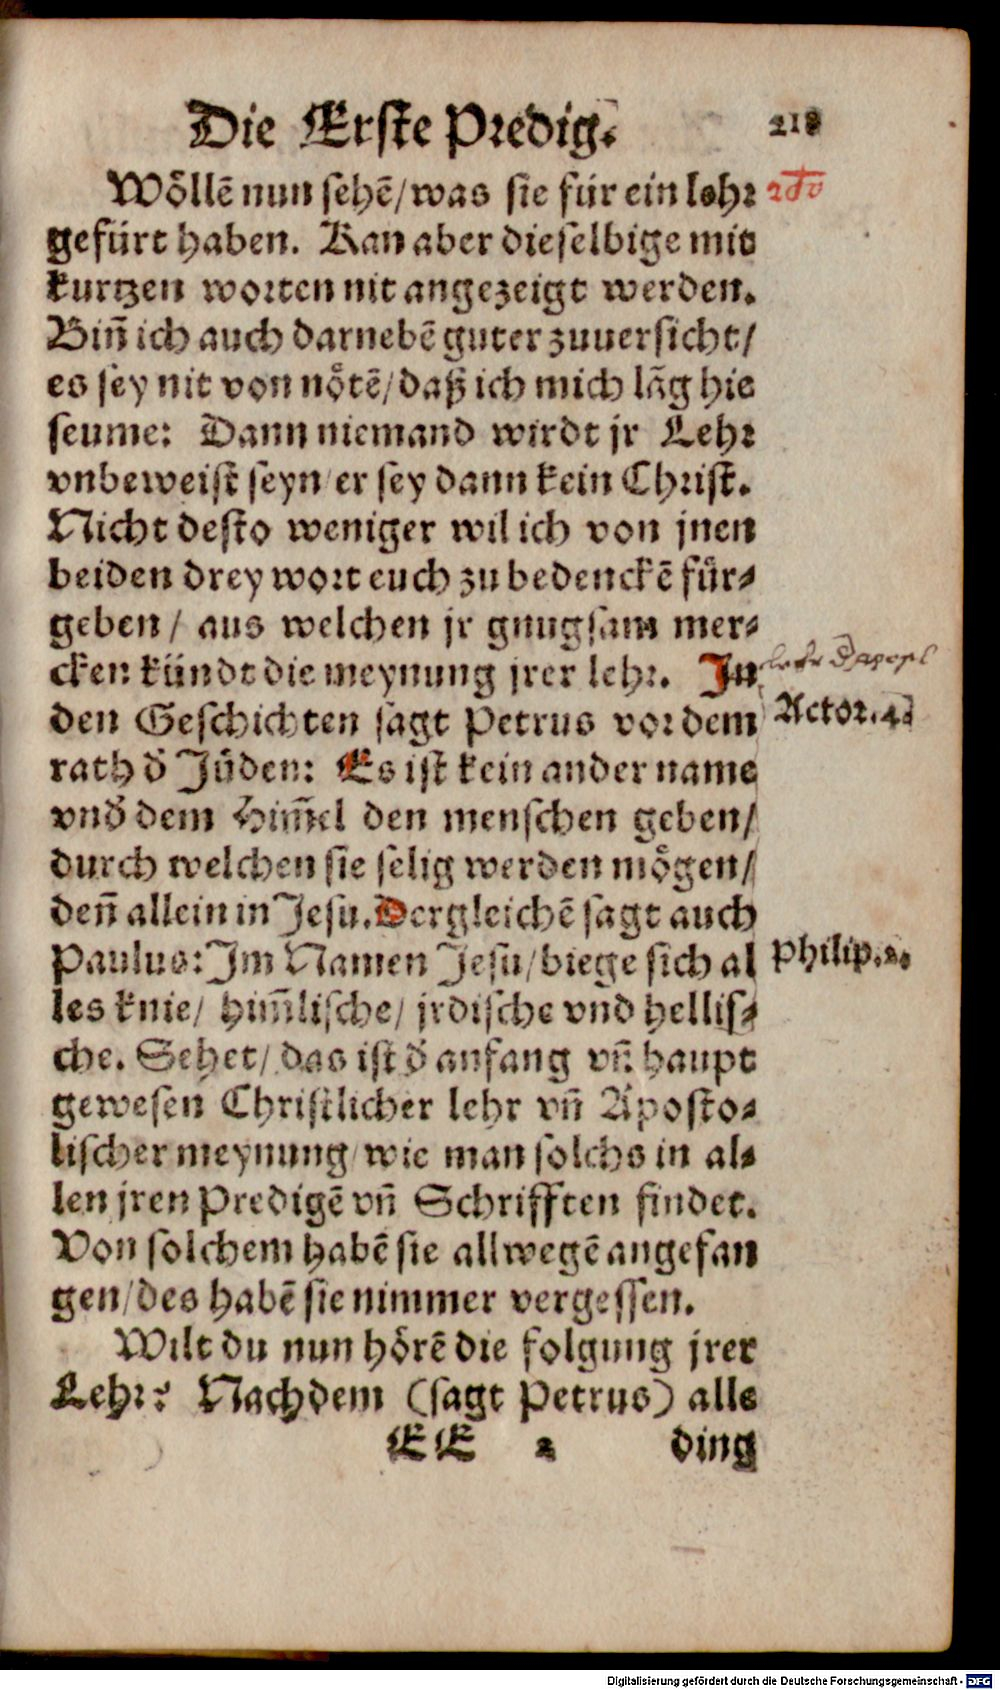 Die Erste Predig.
218
Wöllẽ nun sehẽ/was sie für ein lehr
gefürt haben. Kan aber dieselbige mit
kurtzen worten nit angezeigt werden.
Biñ ich auch darnebẽ guter zuuersicht/
es sey nit von nötẽ/daß ich mich lãg hie
seume: Dann niemand wirdt jr Lehr
vnbeweist seyn/er sey dann kein Christ.
Nicht desto weniger wil ich von jnen
beiden drey wort euch zu bedenckẽ für-
geben/ aus welchen jr gnugsam mer-
cken kündt die meynung jrer lehr. In
den Geschichten sagt Petrus vor dem
Actor.4.
rath d̕ Jüden: Es ist kein ander name
vnd̕ dem Him̃el den menschen geben/
durch welchen sie selig werden mögen/
deñ allein in Jesu. Dergleichẽ sagt auch
Paulus: Im Namen Jesu/biege sich al
Philip.2.
les knie/ him̃lische/ jrdische vnd hellis-
che. Sehet/ das ist d̕ anfang vñ haupt
gewesen Christlicher lehr vñ Aposto-
lischer meynung/wie man solchs in al-
len jren Predigẽ vñ Schrifften findet.
Von solchem habẽ sie allwegẽ angefan
gen/des habẽ sie nimmer vergessen.
Wilt du nun hörẽ die folgung jrer
Lehr? Nachdem (sagt Petrus) alle
EE 2 ding
Digitalisierung gefördert durch die Deutsche Forschungsgemeinschaft - DFG